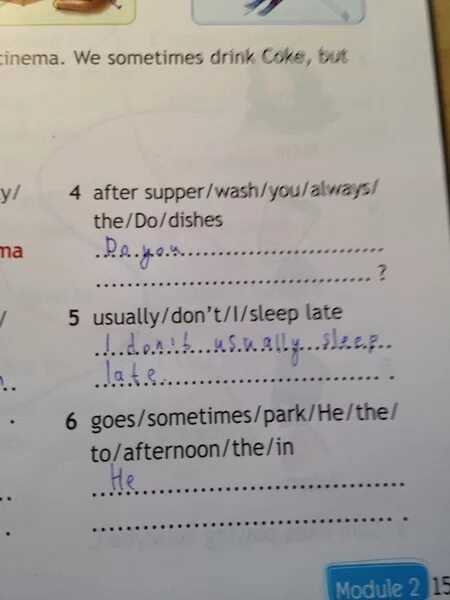 cinema. We sometimes drink Coke, but
y/
4 after supper/wash/you/always/
the/Do/dishes
ma
Do you
?
/
5 usually/don't/I/sleep late
I don't usually sleep
late .
6 goes/sometimes/park/He/the/
to/afternoon/the/in
He
.
Module 2 15